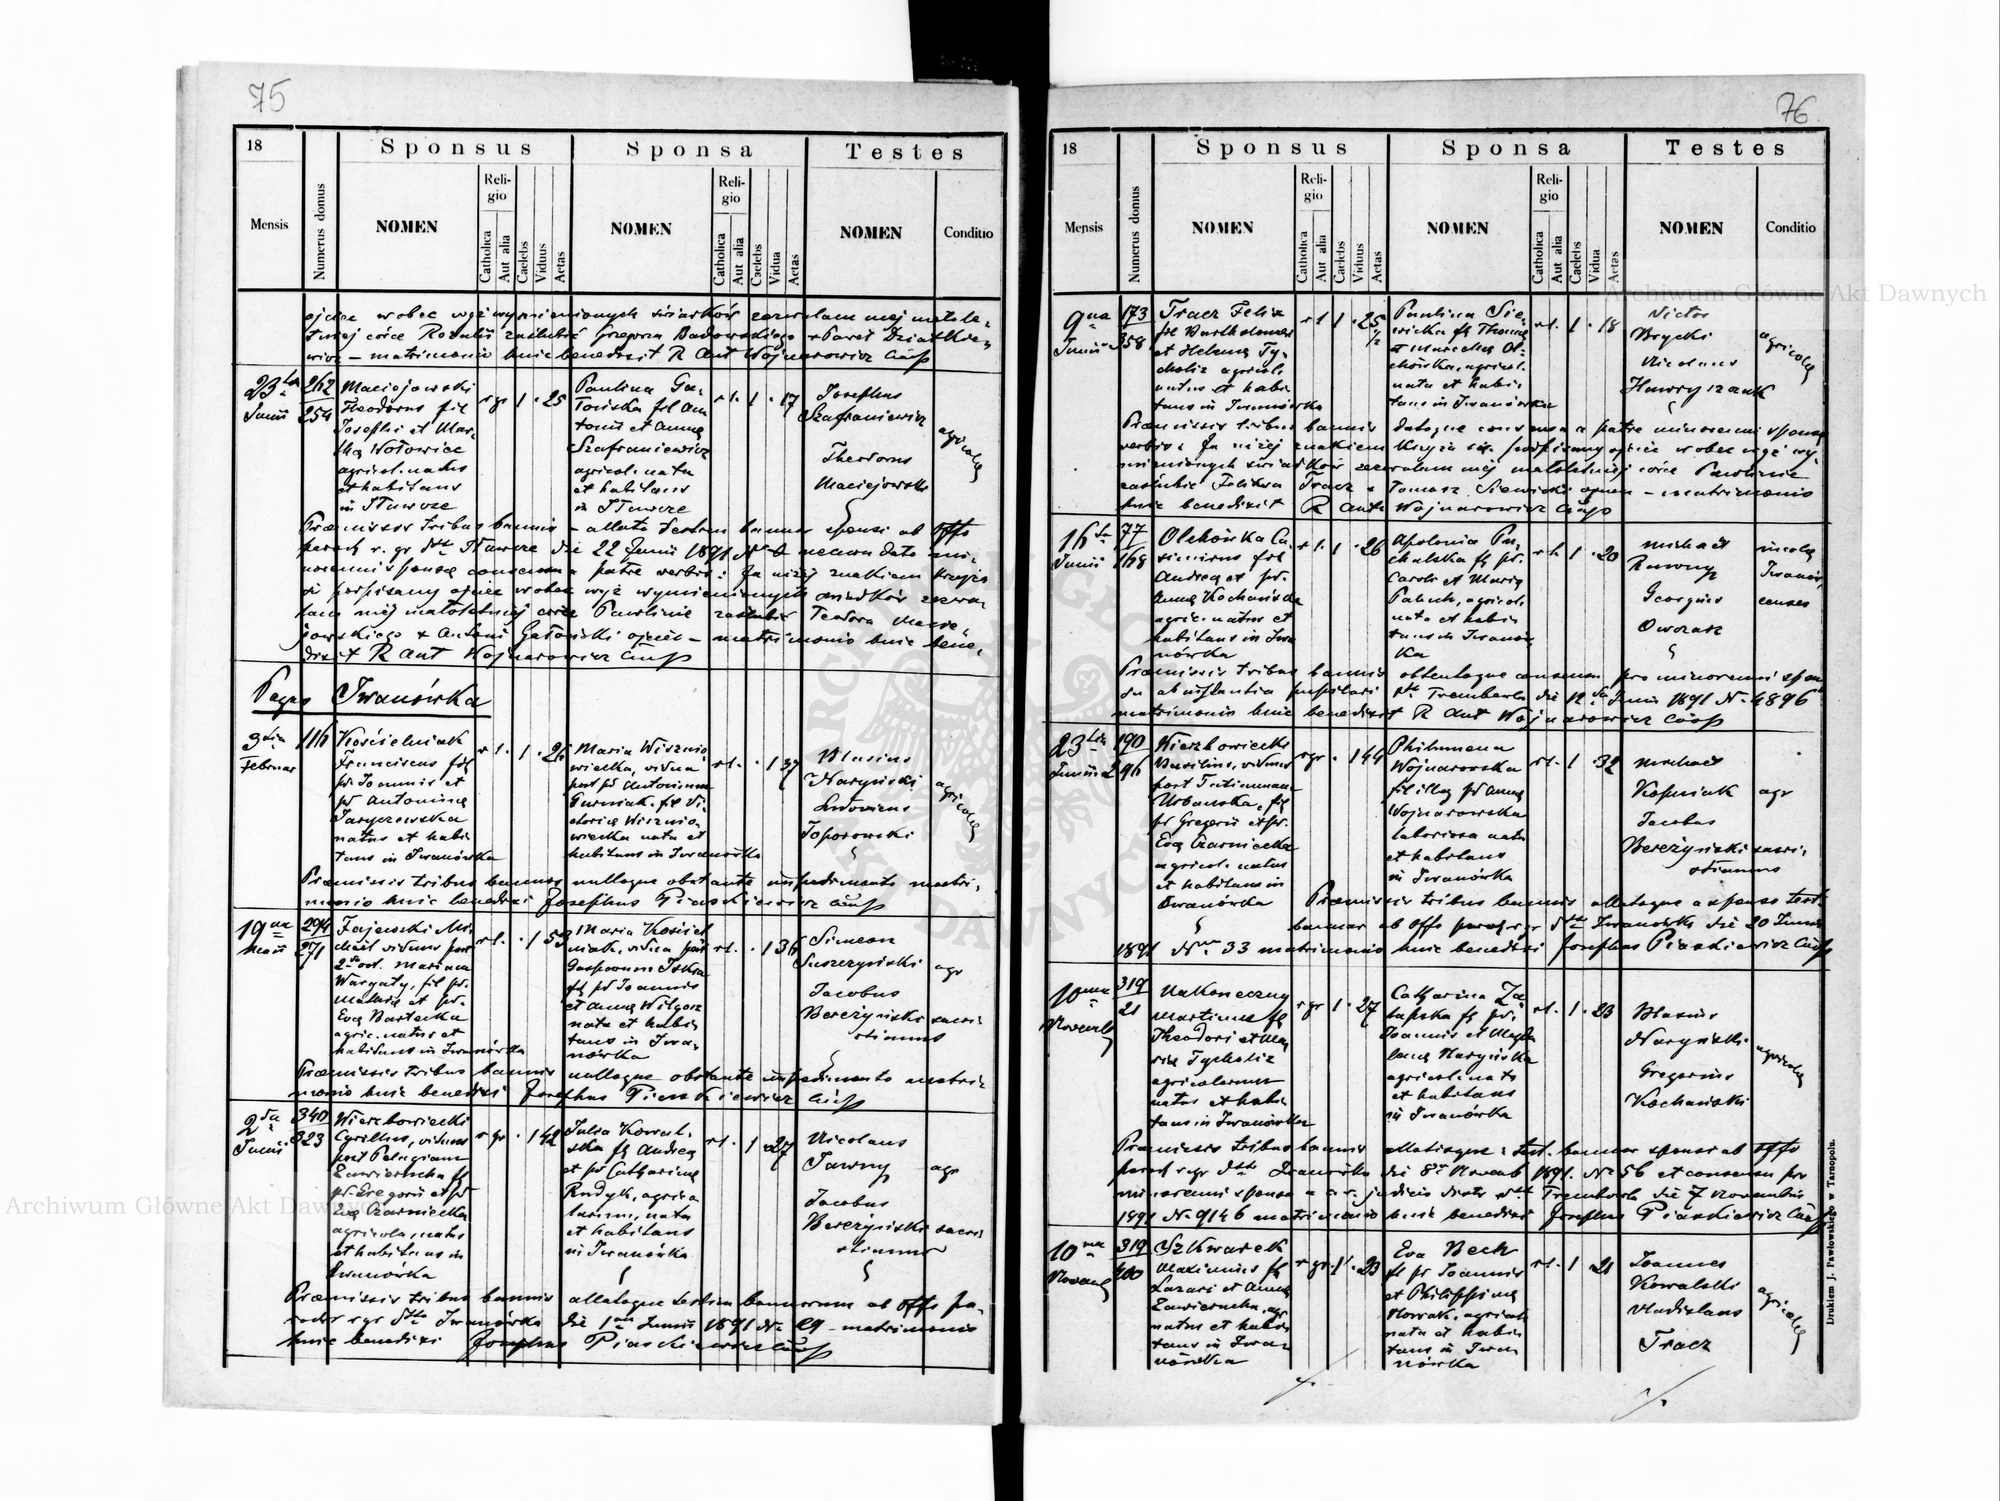 75
18
Sponsus
Sponsa
Testes
Mensis
Numerus domus
NOMEN
Religio
Catholica
Aut alia
Caelebs
Viduus
Aetas
NOMEN
Religio
Catholica
Aut alia
Caelebs
Vidua
Aetas
NOMEN
Conditio
ojciec wobec wyż wymienionych świadków zezwalam mej małole-
tniej córce Rozalii zaślubić Gregorza Badowskiego + Paweł
wicz – matrimonio huic benedixit R Ant Wojnarowicz
23
Junii
262
254
Maciejowski
Theodorus fil
Josephi et Mar-
tha Wołowiec
agricol. natus
et habitans
in Iławcze
r gr 1 . 25
Paulina Ga-
łońska fil An
tonii et Anna
Szafraniewicz
agricol. nata
et habitans
in Iławcze
rl. 1 . 17
Josephus
Szafraniewicz
Theodorus
Maciejowski
agricolae
Praemissis tribus bannis – allata testim bannor sponsi ab offo
paroch r. gr dtto Iławcze die 22 Junii 1891 N
norenni sponsae consensu a patre verbis: Ja niżej znakiem krzyża
podpisany ojciec wobec wyż wymienionych świadków zezwa-
lam mej małoletniej córce Paulinie zaślubić Teodora Macie-
jowskiego + Antoni Gałoński ojciec – matrimonio huic bene-
dixit R Ant Wojnarowicz
Pagus Iwanówka
3
Februar
116
Kościelniak
Franciscus fil
pd Joannis et
pd Antonina
Taryczewska
natus et habi-
tans in Iwanówka
rl. 1 . 26
Maria Wiśnio
wiecka, vidua
post pd Antonium
nata et
habitans in Iwanówka
rl. . 1 37
Blasius
Naryński
Ludovicus
Toporowski
agricolae
Praemissis tribus bannis nulloque obstante impedimento matri-
monio huic benedixi Josephus Piaskiewicz
19
Maii
294
271
Zajewski Mi-
chael viduus post
Mariam
fil pd.
et pd.
Eva Bartecka
agric. natus et
habitans in Iwanówka
rl. . 1 53
Maria Kościel
niak, vidua post
fil pd Joannis
et Anna
nata et habi
tans in Iwa-
nówka
rl. . 1 36
Simeon
Suszczyński
agr
Jacobus
Bereżyński
Praemissis tribus bannis nulloque obstante impedimento matri-
monio huic benedixi Josephus Piaskiewicz
2
Junii
340
323
Wierzbowiecki
Cyrillus, viduus
post Pelagiam
Zawierucha fil
pd. Gregorii et pd
Eva Czarniecka
agricola, natus
et habitans in
Iwanówka
r gr . 1 42
Julia Kowal-
ska fil Andrea
et pd Catharina
Rudyk, agrico
larum, nata
et habitans
in Iwanówka
rl. 1 . 27
Nicolaus
agr
Jacobus
Bereżyński
Praemissis tribus bannis allatoque testim bannorum ab offo pa-
roch r gr dtto Iwanówka die 1 Junii 1891 N 29 – matrimonio
huic benedixi Josephus Piaskiewicz
76
18
Sponsus
Sponsa
Testes
Mensis
Numerus domus
NOMEN
Religio
Catholica
Aut alia
Caelebs
Viduus
Aetas
NOMEN
Religio
Catholica
Aut alia
Caelebs
Vidua
Aetas
NOMEN
Conditio
9
Junii
173
358
Tracz Felix
fil Bartholomaei
et Helena Ty-
choliz agricol.
natus et habi-
tans in Iwanówka
rl 1 . 25 1/2
Paulina Sie-
wicka fil Thoma
et Olchówka, agricol.
nata et habi-
tans in Iwanówka
rl. 1 . 18
Victor
Brycki
Nicolaus
Hawryszczuk
agricolae
Praemissis tribus bannis datoque consensu a patre minorenni sponsae
verbis: Ja niżej znakiem krzyża św. podpisany ojciec wobec wyż wy-
mienionych świadków zezwalam mej małoletniej córce Paulinie
zaślubić Feliksa Tracz + Tomasz Siewicki ojciec – matrimonio
huic benedixit R Ant Wojnarowicz
16
Junii
77
168
Olchówka Ca
simirus fil
Andrea et pd.
Anna Kochańska
agric. natus et
habitans in Iwa
nówka
rl. 1 . 26
Apolonia Pa-
chulska fil pd.
Caroli et Maria
Paluch, agricol.
nata et habi
tans in Iwanów-
ka
rl. 1 . 20
Michael
Rawny
Georgius
Owczar
incolae
Iwanów-
censes
Praemissis tribus bannis obtentoque consensu pro minorenni spon
sa ab instantia pupilari dto Trembowla die 12 Junii 1891 N. 4896
matrimonio huic benedixit R Ant Wojnarowicz
23
Junii
190
296
Wierzbowiecki
Basilius, viduus
post Tatiannam
Urbańska, fil
pd Gregorii et pd.
Eva Czarniecka
agricol. natus
et habitans in
Iwanówka
r gr . 1 44
Philomena
Wojnarowska
fil illeg pd Anna
Wojnarowska
laboriosa nata
et habitans
in Iwanówka
rl. 1 . 32
Michael
Kopniak agr
Jacobus
Bereżyński
Praemissis tribus bannis allatoque a sponso testi
bannor ab offo paroch r gr dtto Iwanówka die 20 Junii
1891 N 33 matrimonio huic benedixi Josephus Piaskiewicz
10
Novemb
319
21
Nakoneczny
Martinus fil
Theodori et Ma
ria Tycholiz
agricolarum
natus et habi
tans in Iwanówka
r gr 1 . 27
Catharina Za-
łupska fil pd.
Joannis et Magda
lena Naryńska
agricol. nata
et habitans
in Iwanówka
rl. 1 . 23
Blasius
Naryński
Gregorius
Kochański
agricolae
Praemissis tribus bannis allatisque: test. bannor sponsi ab offo
paroch r gr dtto Iwanówka die 8 Novemb 1891. N. 56 et consensu pro
minorenni sponsa a c. r. judicio distr dtto Trembowla die 7 Novembris
1891 N. 9146 matrimonio huic benedixi Josephus Piaskiewicz
10
Novemb
319
Szkwarek
Maximus fil
Lazari et Anna
Zawierucha, agr
natus et habi
tans in Iwa
nówka
r gr. 1 . 23
Eva Bech
fil pd Joannis
et Philippina
Nowak, agricol
nata et habi
tans in Iwa
nówka
rl. 1 . 21
Joannes
Kowalski
Vladislaus
Tracz
agricolae
Drukiem J. Pawłowskiego w Tarnopolu.
Archiwum Główne Akt Dawnych
Archiwum Główne Akt Dawnych